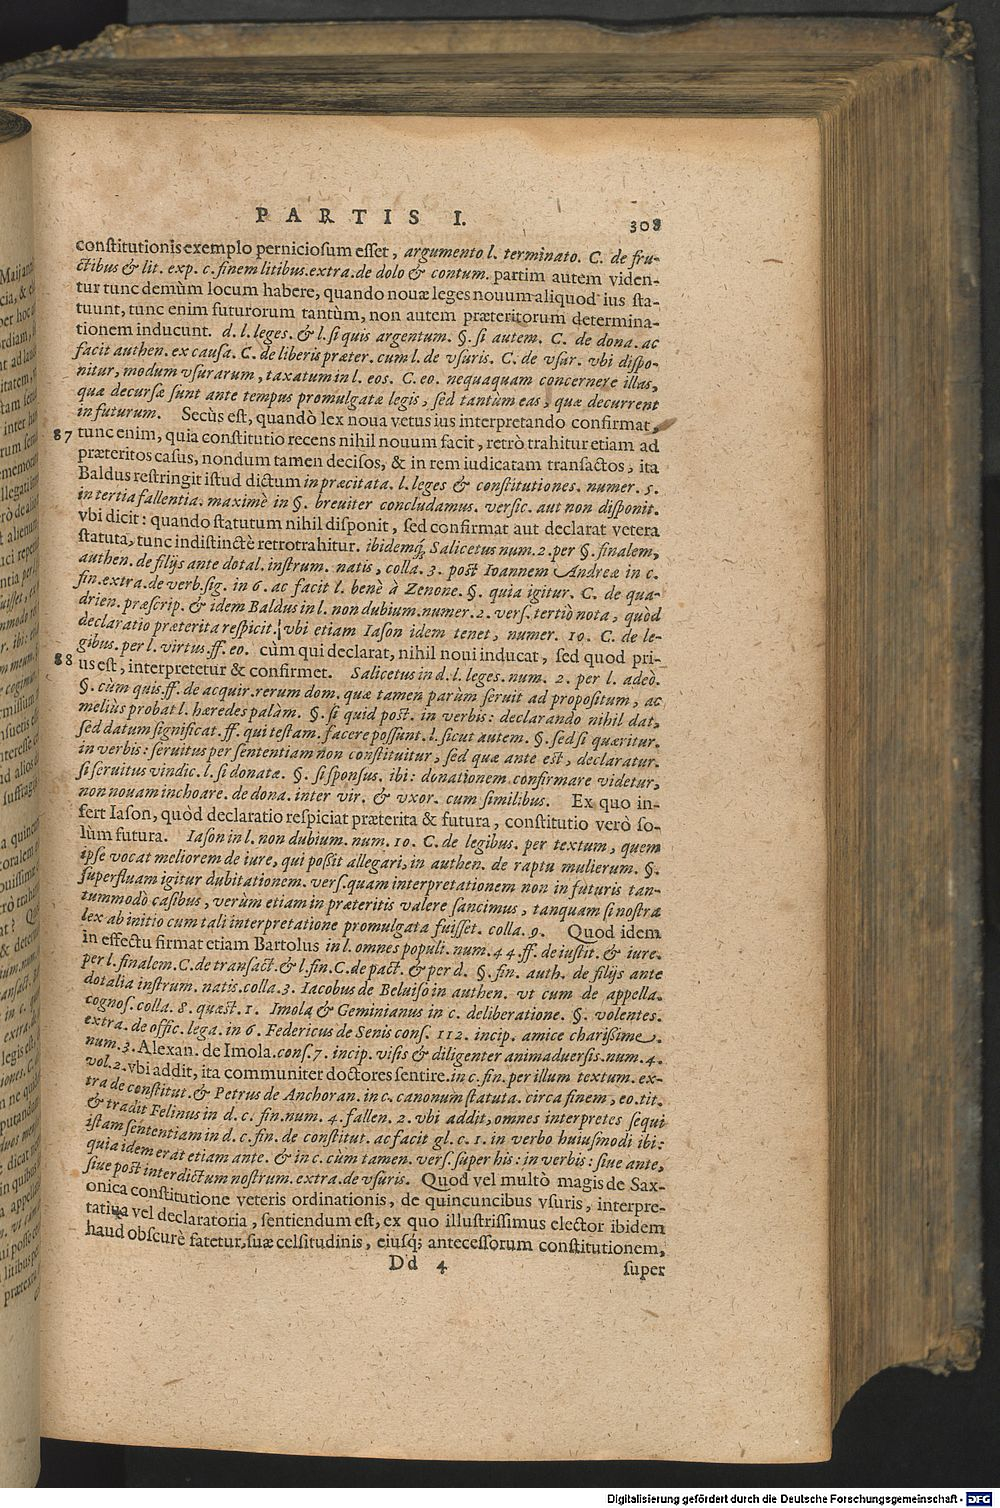 PARTIS I. 308
constitutionis exemplo perniciosum esset, argumento l. terminato. C. de fru-
ctibus & lit. exp. c. finem litibus. extra. de dolo & contum. partim autem viden-
tur tunc demùm locum habere, quando nouæ leges nouum aliquod ius sta-
tuunt, tunc enim futurorum tantùm, non autem præteritorum determina-
tionem inducunt. d. l. leges. & l. si quis argentum. §. si autem. C. de dona. ac
facit authen. ex causa. C. de liberis præter. cum l. de vsuris. C. de vsur. vbi dispo-
nitur, modum vsurarum, taxatum in l. eos. C. eo. nequaquam concernere illas,
quæ decursæ sunt ante tempus promulgatæ legis, sed tantùm eas, quæ decurrent
in futurum. Secùs est, quandò lex noua vetus ius interpretando confirmat,
87 tunc enim, quia constitutio recens nihil nouum facit, retrò trahitur etiam ad
præteritos casus, nondum tamen decisos, & in rem iudicatam transactos, ita
Baldus restringit istud dictum in præcitata. l. leges & constitutiones. numer. 5.
in tertia fallentia. maximè in §. breuiter concludamus. versic. aut non disponit.
vbi dicit: quando statutum nihil disponit, sed confirmat aut declarat vetera
statuta, tunc indistinctè retrotrahitur. ibidemq́; Salicetus num. 2. per §. finalem,
authen. de filijs ante dotal. instrum. natis, colla. 3. post Ioannem Andreæ in c.
fin. extra. de verb. sig. in 6. ac facit l. benè à Zenone. §. quia igitur. C. de qua-
drien. præscrip. & idem Baldus in l. non dubium. numer. 2. vers. tertiò nota, quòd
declaratio præterita respicit. vbi etiam Iason idem tenet, numer. 10. C. de le-
gibus. per l. virtus. ff. eo. cùm qui declarat, nihil noui inducat, sed quod pri-
88 us est, interpretetur & confirmet. Salicetus in d. l. leges. num. 2. per l. adeò.
§. cùm quis. ff. de acquir. rerum dom. quæ tamen parùm seruit ad propositum, ac
meliùs probat l. hæredes palàm. §. si quid post. in verbis: declarando nihil dat,
sed datum significat. ff. qui testam. facere possunt. l. sicut autem. §. sed si quæritur.
in verbis: seruitus per sententiam non constituitur, sed quæ ante est, declaratur.
si seruitus vindic. l. si donatæ. §. si sponsus. ibi: donationem confirmare videtur,
non nouam inchoare. de dona. inter vir. & vxor. cum similibus. Ex quo in-
fert Iason, quòd declaratio respiciat præterita & futura, constitutio verò so-
lùm futura. Iason in l. non dubium. num. 10. C. de legibus. per textum, quem
ipse vocat meliorem de iure, qui possit allegari, in authen. de raptu mulierum. §.
superfluam igitur dubitationem. vers. quam interpretationem non in futuris tan-
tummodò casibus, verùm etiam in præteritis valere sancimus, tanquam si nostra
lex ab initio cum tali interpretatione promulgata fuisset. colla. 9. Quod idem
in effectu firmat etiam Bartolus in l. omnes populi. num. 44. ff. de iustit. & iure.
per l. finalem. C. de transact. & l. fin. C. de pact. & per d. §. fin. auth. de filijs ante
dotalia instrum. natis. colla. 3. Iacobus de Beluiso in authen. vt cum de appella.
cognos. colla. 8. quæst. 1. Imola & Geminianus in c. deliberatione. §. volentes.
extra. de offic. lega. in 6. Federicus de Senis cons. 112. incip. amice charissime.
num. 3. Alexan. de Imola. cons. 7. incip. visis & diligenter animaduersis. num. 4.
vol. 2. vbi addit, ita communiter doctores sentire. in c. fin. per illum textum. ex-
tra de constitut. & Petrus de Anchoran. in c. canonum statuta. circa finem, eo. tit.
& tradit Felinus in d. c. fin. num. 4. fallen. 2. vbi addit, omnes interpretes sequi
istam sententiam in d. c. fin. de constitut. ac facit gl. c. 1. in verbo huiusmodi ibi:
quia idem erat etiam ante. & in c. cùm tamen. vers. super his: in verbis: siue ante,
siue post interdictum nostrum. extra. de vsuris. Quod vel multò magis de Sax-
onica constitutione veteris ordinationis, de quincuncibus vsuris, interpre-
tatiua vel declaratoria, sentiendum est, ex quo illustrissimus elector ibidem
haud obscurè fatetur, suæ celsitudinis, eiusq́; antecessorum constitutionem,
Dd 4 super
Digitalisierung gefördert durch die Deutsche Forschungsgemeinschaft - DFG